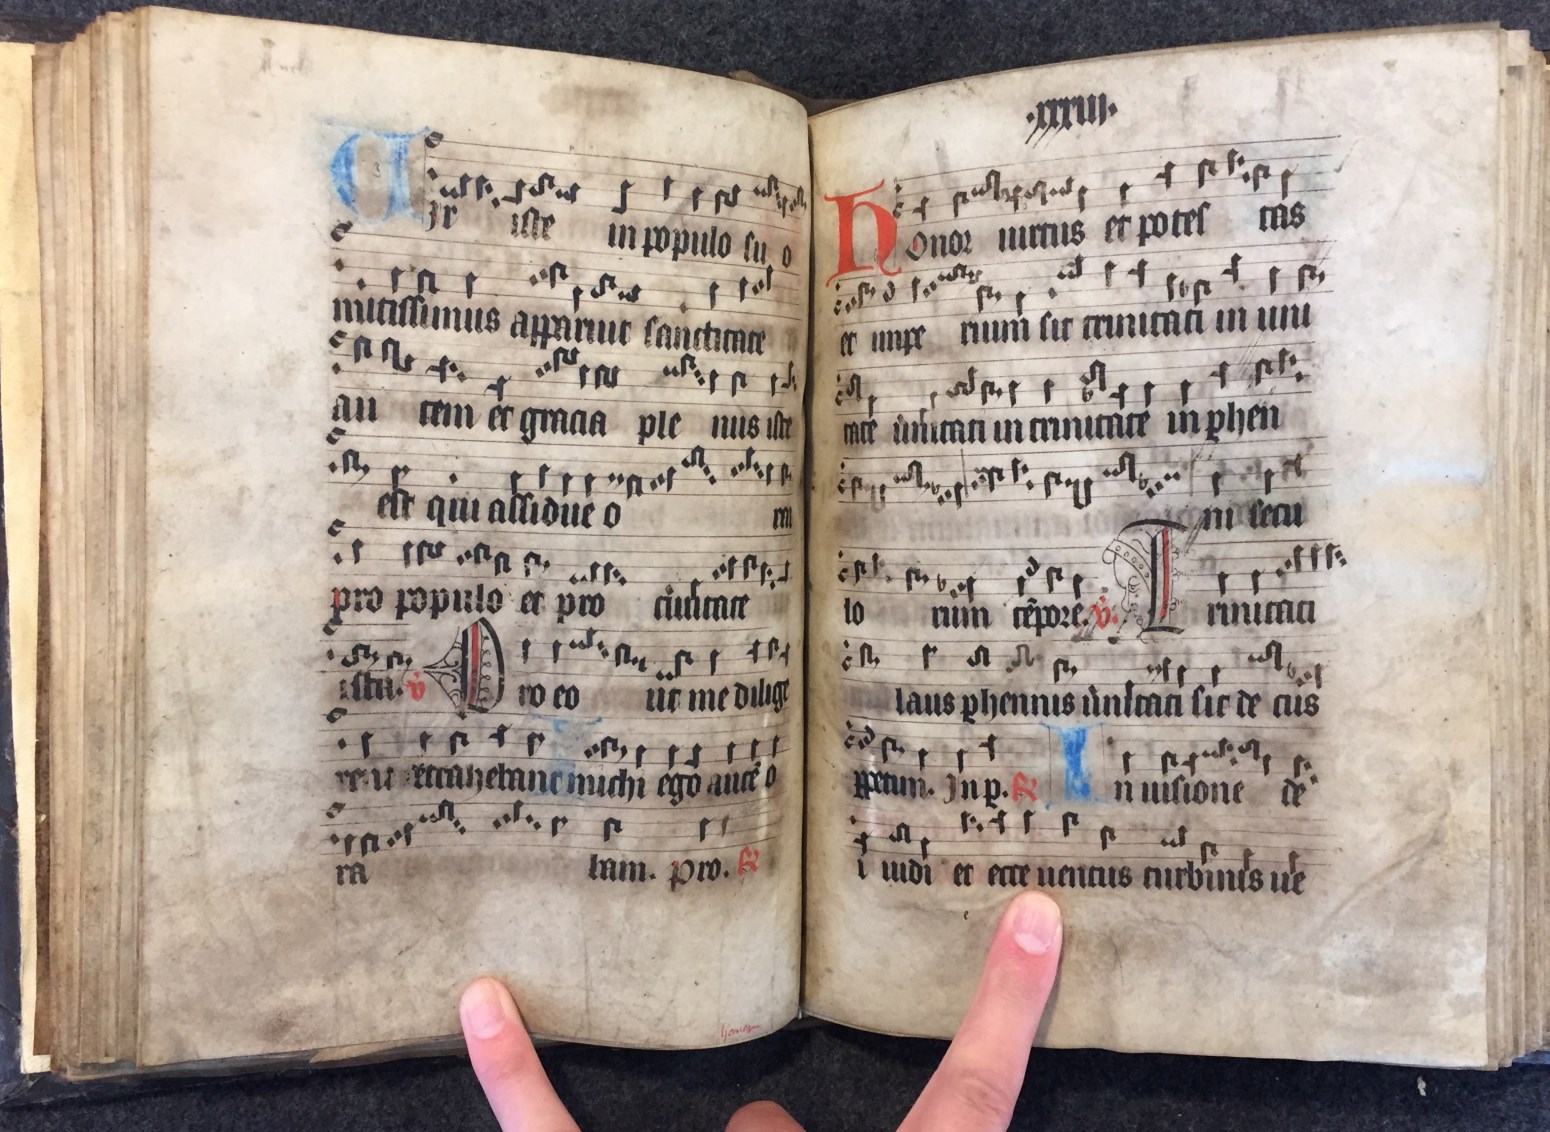 Vir iste in populo su o
mitissimus apparuit sanctitate
au tem et gracia ple nus iste
est qui assidue o rat
pro populo et pro ciuitate
ista. v Pro eo ut me dilige
rent detrahebant michi ego autē o
ra bam. Pro. R
.xxxiii.
Honor uirtus et potes tas
et impe rium sit trinitati in uni
tate ūnitati in trinitate in phen
ni secu
lo rum tēpore. v Trinitati
laus phennis ūnitati sit de cus
ppetim. In p. R In uisione de
i uidi et ecce uentus turbinis ue